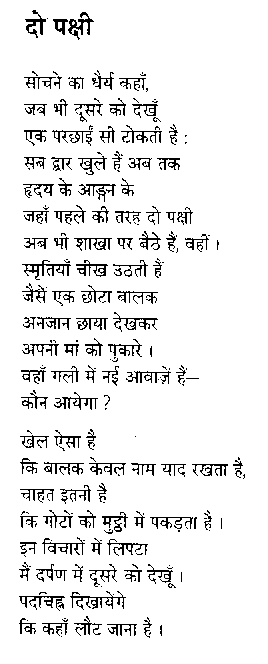 दो पक्षी
सोचने का धैर्य कहाँ,
जब भी दूसरे को देखूँ
एक परछाईं सी टोकती है :
सब द्वार खुले हैं अब तक
हृदय के आङ्गन के
जहाँ पहले की तरह दो पक्षी
अब भी शाखा पर बैठे हैं, वहीं ।
स्मृतियाँ चीख उठती हैं
जैसे एक छोटा बालक
अनजान छाया देखकर
अपनी मां को पुकारे ।
वहाँ गली में नई आवाज़ें हैं—
कौन आयेगा ?
खेल ऐसा है
कि बालक केवल नाम याद रखता है,
चाहत इतनी है
कि गोटों को मुट्ठी में पकड़ता है ।
इन विचारों में लिपटा
मैं दर्पण में दूसरे को देखूँ ।
पदचिह्न दिखायेंगे
कि कहाँ लौट जाना है ।